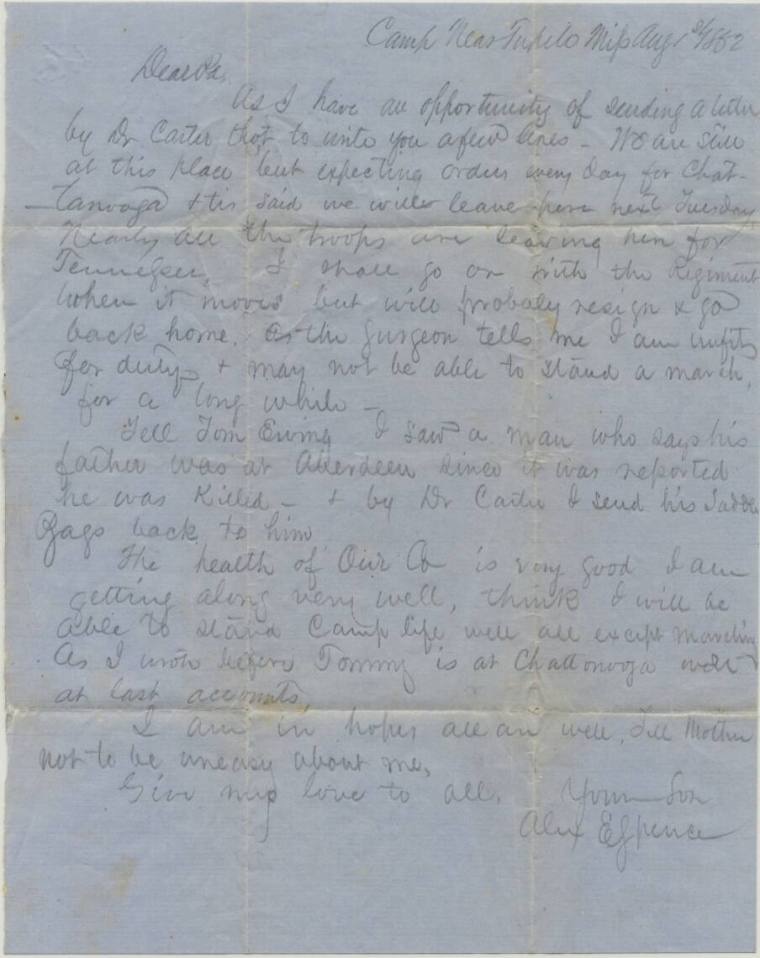 Camp Near Tupelo Miss Aug 1862
Dear Pa,
As I have an opportunity of sending a letter
by Dr Carter thot to write you a few lines - We are still
at this place but expecting orders every day for Chat-
-tanooga & tis said we will leave here next Tuesday
Nearly all the troops are leaving here for
Tennessee, I shall go on with the Regiment
when it moves but will probaly resign & go
back home. as the surgeon tells me I am unfit
for duty & may not be able to stand a march,
for a long while -
Tell Tom Ewing I saw a man who says his
father was at Aberdeen since it was reported
he was Killed - & by Dr Carter I send his Saddle
Bags back to him
The health of Our Co is very good I am
getting along very well, think I will be
able to stand Camp life well all except marching
As I wrote before Tommy is at Chattonooga well
at last accounts,
I am in hopes all are well, Tell Mother
not to be uneasy about me,
Give my love to all. Your Son
Alex E Spence